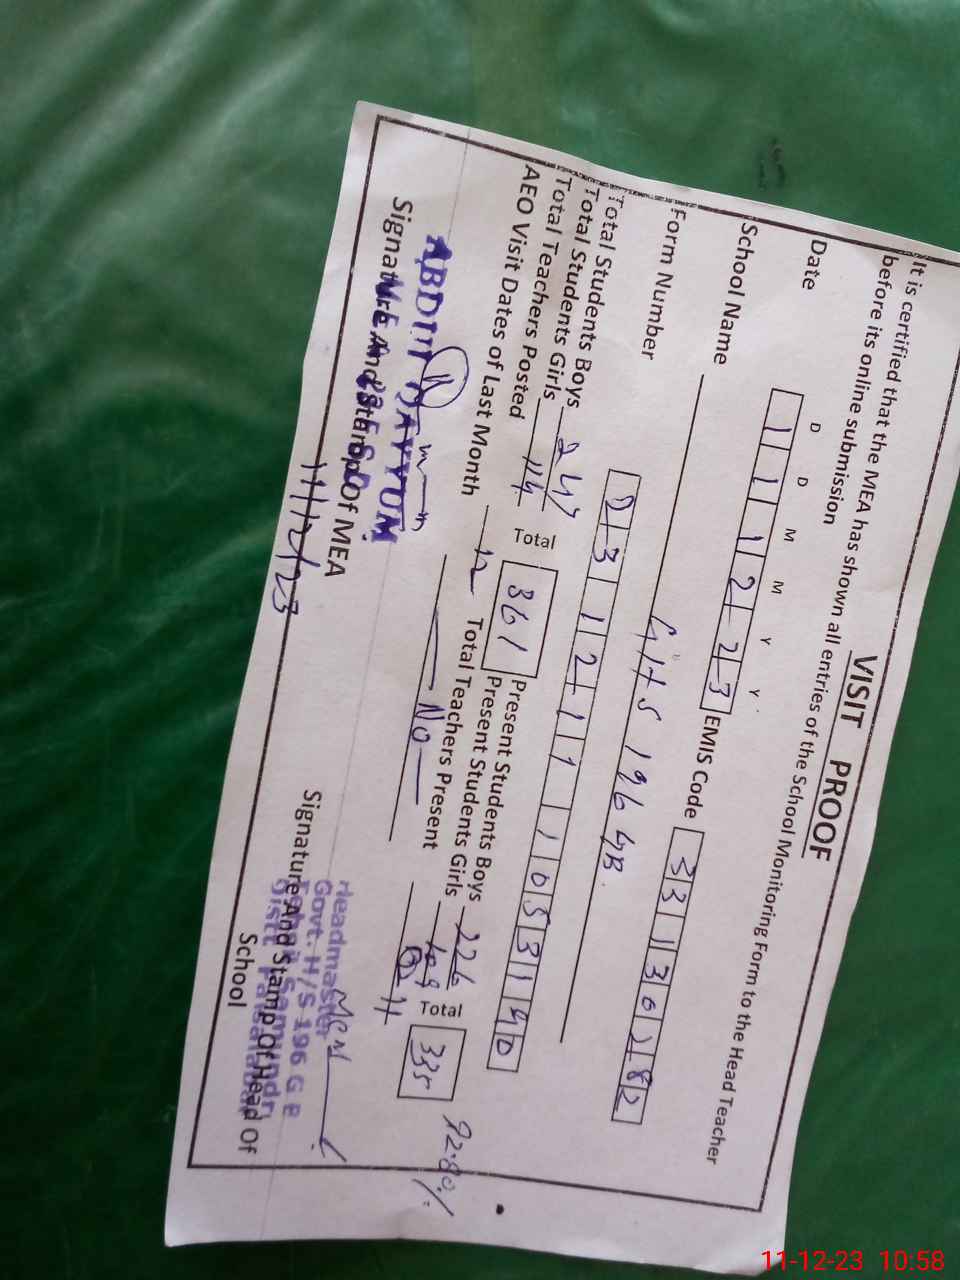 VISIT PROOF
It is certified that the MEA has shown all entries of the School Monitoring Form to the Head Teacher
before its online submission
D D M M Y Y
Date 1 1 1 2 2 3 EMIS Code 3 3 1 3 0 2 8 2
School Name G H S 196 GB
Form Number 2 3 1 2 1 1 1 1 0 5 3 1 4 0
Total Students Boys 247 Present Students Boys 226
Total Students Girls 114 Total 361 Present Students Girls 109 Total 335 92.80%
Total Teachers Posted 12 Total Teachers Present 11
AEO Visit Dates of Last Month No
ABDUL QAYYUM
Signature And Stamp Of MEA
11/12/23
Headmaster
Govt. H/S 196 G B
Signature And Stamp Of Head Of
School
11-12-23 10:58